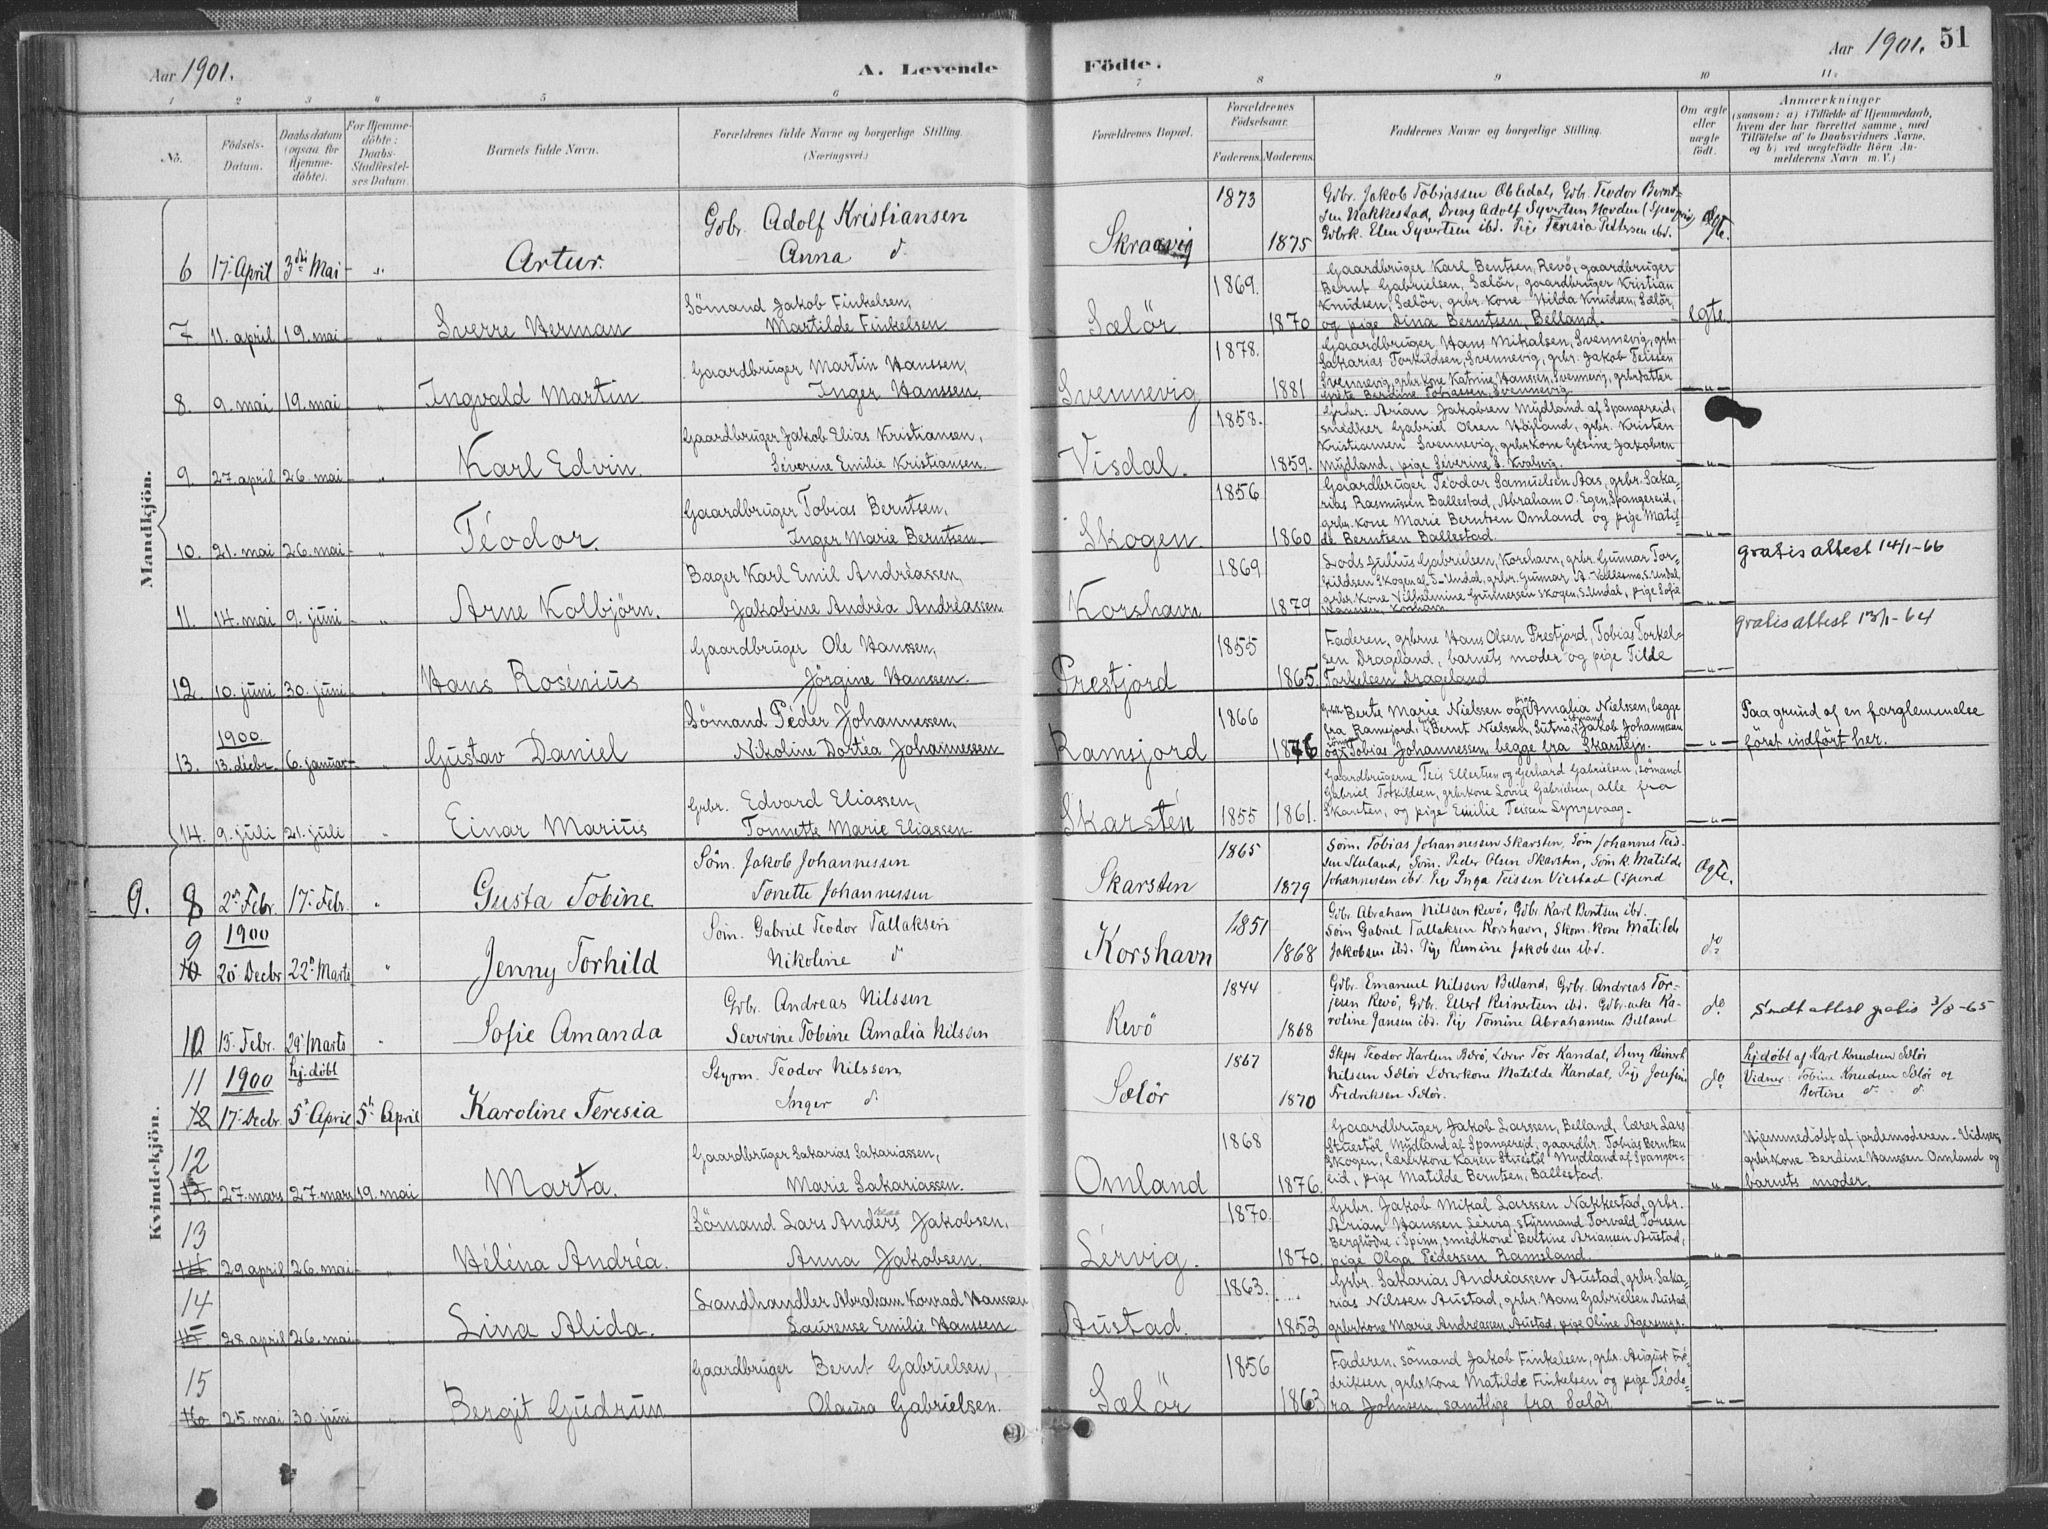 Aar 1901.
A. Levende Födte.
Aar 1901. 51
1 2 3 4 5 6 7 8 9 10 11.
No.
Födsels-Datum.
Daabsdatum (ogsaa for Hjemme-döbte).
For Hjemme-döbte: Daabs-Stadfæstel-ses Datum.
Barnets fulde Navn.
Forældrenes fulde Navne og borgerlige Stilling.
(Næringsvei.)
Forældrenes Bopæl.
Forældrenes Födselsaar.
Faderens. Moderens.
Faddernes Navne og borgerlige Stilling.
Om ægte eller uægte födt.
Anmærkninger
(saasom: a) i Tilfælde af Hjemmedaab, hvem der har forrettet samme, med Tilföielse af to Daabsvidners Navne. og b) ved uegtefödte Börn Anmelderens Navn m. V.)
Mandkjön.
6 17. April 3die Mai „ Artur. Gdbr. Adolf Kristiansen
Anna do. Skraavig 1873 1875
Gdbr. Jakob Tobiassen Obledal, Gdb. Teodor Bernt-
sen Nakkestad, Dreng Adolf Syvertsen Hovden
Gdbrk. Elen Syvertsen ibd. Pige Teresia Pettersen ibd. Ægte.
7 11. april 19. mai „ Sverre Herman Sömand Jakob Finkelsen,
Martilde Finkelsen Sælör. 1869. 1870
Gaardbruger Karl Bentsen, Revö, gaardbruger
Bernt Gabrielsen, Sælör, gaardbruger Kristian
Knudsen, Sælör, grbr. kone Hilda Knudsen, Sælör,
og pige Dina Berntsen, Belland. egte.
8. 9. mai 19. mai „ Ingvald Martin Gaardbruger Martin Hanssen,
Inger Hanssen. Svennevig 1878. 1881
Gaardbruger Hans Mikalsen, Svennevig, grbr.
Sakarias Torkildsen, Svennevig, grbr. Jakob Teissen
Svennevig, grbrkone Katrine Hanssen, Svennevig, grbrdatter
Grete Berdine Tobiassen, Svennevig. „
9. 27. april 26. mai „ Karl Edvin. Gaardbruger Jakob Elias Kristiansen,
Séverine Emilie Kristiansen. Visdal. 1858. 1859.
Grbr. Arian Jakobsen Mydland af Spangereid,
snedker Gabriel Olsen Höjland, grbr. Kristen
Kristiansen Svennevig, grbrkone Gesine Jakobsen
Mydland, pige Séverine S. Kvalsvig. „
10. 21. mai 26. mai „ Téodor. Gaardbruger Tobias Berntsen,
Inger Marie Berntsen. Skogen. 1856 1860
Gaardbruger Téodor Samuelsen Aas, grbr. Saka-
rias Rasmussen Ballestad, Abraham O. Egen, Spangereid,
grbr. kone Marie Berntsen Omland og pige Matil-
de Berntsen Ballestad. „
11. 14. mai 9. juni „ Arne Kolbjörn. Bager Karl Emil Andréassen,
Jakobine Andréa Andréassen Korshavn 1869 1879
Lods Julius Gabrielsen, Korshavn, grbr. Gunnar Tor-
kildsen Skogen af S-Undal, grbr. Gunnar A. Vallesmo, S. Undal,
grbr. kone Vilhelmine Gunnersen Skogen, S. Undal, pige Sofie
Hanssen, Korshavn. „ gratis attest 14/1-66
12. 10. juni 30. juni „ Hans Rosénius Gaardbruger Ole Hanssen,
Jörgine Hanssen. Prestjord 1855 1865
Faderen, grbrne Hans Olsen Prestjord, Tobias Torkel-
sen Drageland, barnets moder og pige Tilde
Torkelsen Drageland „ gratis attest 13/1-64
13. 1900 13. decbr. 6. januar „ Gustav Daniel Sömand Péder Johannessen,
Nikoline Dortéa Johannessen Ramsjord 1866 1876
Berte Marie Nielssen og Amalia Nielssen, begge
fra Ramsjord, Bernt Nielssen, Jakob Johannessen
og Tobias Johannessen begge fra Skarstejn. „
Paa grund af en forglemmelse
föret indfört her.
14. 9. juli 21. juli „ Einar Marius Grbr. Edvard Eliassen,
Tonnette Marie Eliassen Skarstén 1855 1861.
Gaardbrugerne Teis Ellertsen og Gerhard Gabrielsen, sömand
Gabriel Torkildsen, grbrkone Lovise Gabrielsen, alle fra
Skarsten, og pige Emilie Teissen Lyngevaag. „
Kvindekjön.
9. 8 2den Febr. 17. Febr. „ Gusta Tobine Söm. Jakob Johannessen
Tonette Johannessen Skarsten 1865 1879
Söm. Tobias Johannessen Skarsten, Söm Johannes Teis-
sen Stuland, Söm. Peder Olsen Skarsten, Söm. k. Matilde
Johannessen ibd. Pige Inga Teissen Viestad (Spind Ægte.
9 10 1900 20. Decbr. 22. Marts „ Jenny Torhild Söm. Gabriel Teodor Tallaksen
Nikoline do Korshavn 1851 1868
Gdbr. Abraham Nilssen Revö, Gdbr. Karl Bentsen ibd.
Söm Gabriel Tallaksen Korshavn, Skom. kone Matilde
Jakobsen ibd. Pige Remine Jakobsen ibd. do
10 15. Febr. 29. Marts „ Sofie Amanda Gdbr. Andreas Nilssen
Severine Tobine Amalia Nilssen Revö 1844 1868
Gdbr. Emanuel Nilssen Belland, Gdbr. Andreas Tor-
jesen Revö, Gdbr. Ellert Reinertsen ibd. Gdbr.enke Ka-
roline Jansen ibd. Pige Tomine Abrahamsen Belland do.
Sendt attest gratis 3/8-65
11 12 1900 17. Decbr. hj.döbt 5. April 5. April Karoline Teresia Styrm. Teodor Nilssen
Inger do Sælör 1867 1870
Skpr Teodor Karlsen Borö, Lærer Tor Kandal, Dreng Reinert
Nilssen Sælör Lærerkone Matilde Kandal, Pige Josefine
Fredriksen Sælör. do
hj.döbt af Karl Knudsen Sælör
Vidner: Tobine Knudsen Sælör og
Bertine do do
12 13. 27. mars 27. mars 19. mai Marta. Gaardbruger Sakarias Sakariassen,
Marie Sakariassen. Omland 1868 1876.
Gaardbruger Jakob Larssen, Belland, lærer Lars
Stuestöl Mydland af Spangereid, gaardbr. Tobias Berntsen
Skogen, lærerkone Karen Stuestöl Mydland af Spanger-
eid, pige Matilde Berntsen, Ballestad. „
Hjemmedöbt af jordemoderen. Vidner,
grbrkone Berdine Hanssen Omland og
barnets moder.
13 14 29 april 26. mai „ Héléna Andréa. Sömand Lars Anders Jakobsen,
Anna Jakobsen. Lérvig. 1870. 1870.
Grbr. Jakob Mikal Larssen Nakkestad, grbr.
Arian Hanssen Lérvig, styrmand Torvald Torsen
Berglödne i Spinn, smedkone Bertine Ariansen Austad,
pige Olga Pedersen Ramsland. „
14 15 28. april 26. mai „ Lina Alida. Landhandler Abraham Konrad Hanssen,
Laurense Emilie Hanssen Austad. 1863. 1853
Grbr. Sakarias Andréassen Austad, grbr. Saka-
rias Nilssen Austad, grbr. Hans Gabrielsen Austad,
grbrkone Marie Andreassen Austad, pige Oline „
15 16 25. mai 30. juni „ Bergit Gudrun Gaardbruger Bernt Gabrielsen,
Olaura Gabrielsen. Sælör 1856 1863
Faderen, sömand Jakob Finkelsen, grbr. August Fre-
driksen, grbrkone Matilde Finkelsen og pige Téodo-
ra Johnsen, samtlige fra Sælör. „